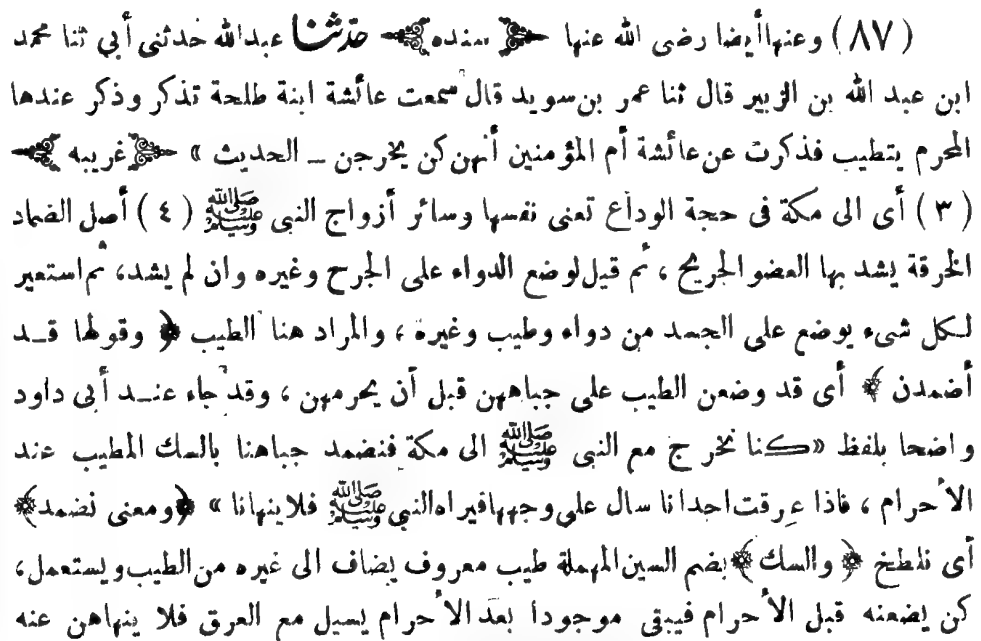 (٨٧) وعنها أيضا رضى الله عنها ﴿ سنده ﴾ حدثنا عبدالله حدثنى أبي ثنا محمد
ابن عبد الله بن الزبير قال ثنا عمر بن سويد قال سمعت عائشة ابنة طلحة تذكر وذكر عندها
المحرم يتطيب فذكرت عن عائشة أم المؤمنين أنهن كن يخرجن ــ الحديث » ﴿ غريبه ﴾
(٣) أى الى مكة فى حجة الوداع تعنى نفسها وسائر أزواج النبى ﷺ (٤) أصل الضماد
الخرقة يشد بها العضو الجريح ، ثم قيل لوضع الدواء على الجرح وغيره وان لم يشد، ثم استعير
لكل شىء يوضع على الجسد من دواء وطيب وغيره ، والمراد هنا الطيب ﴿ وقولها قـد
أضمدن ﴾ أى قد وضعن الطيب على جباههن قبل أن يحرمهن ، وقد جاء عنـد أبى داود
واضحا بلفظ «كنا نخرج مع النبى ﷺ الى مكة فنضمد جباهنا بالسك المطيب عند
الأحرام ، فاذا عرقت احدانا سال على وجهها فيراه النبى ﷺ فلا ينهانا » ﴿ ومعنى نضمد ﴾
أى نلطخ ﴿ والسك ﴾ بضم السين المهملة طيب معروف يضاف الى غيره من الطيب ويستعمل،
كن يضعنه قبل الأحرام فيبقى موجودا بعد الأحرام يسيل مع العرق فلا ينهاهن عنه